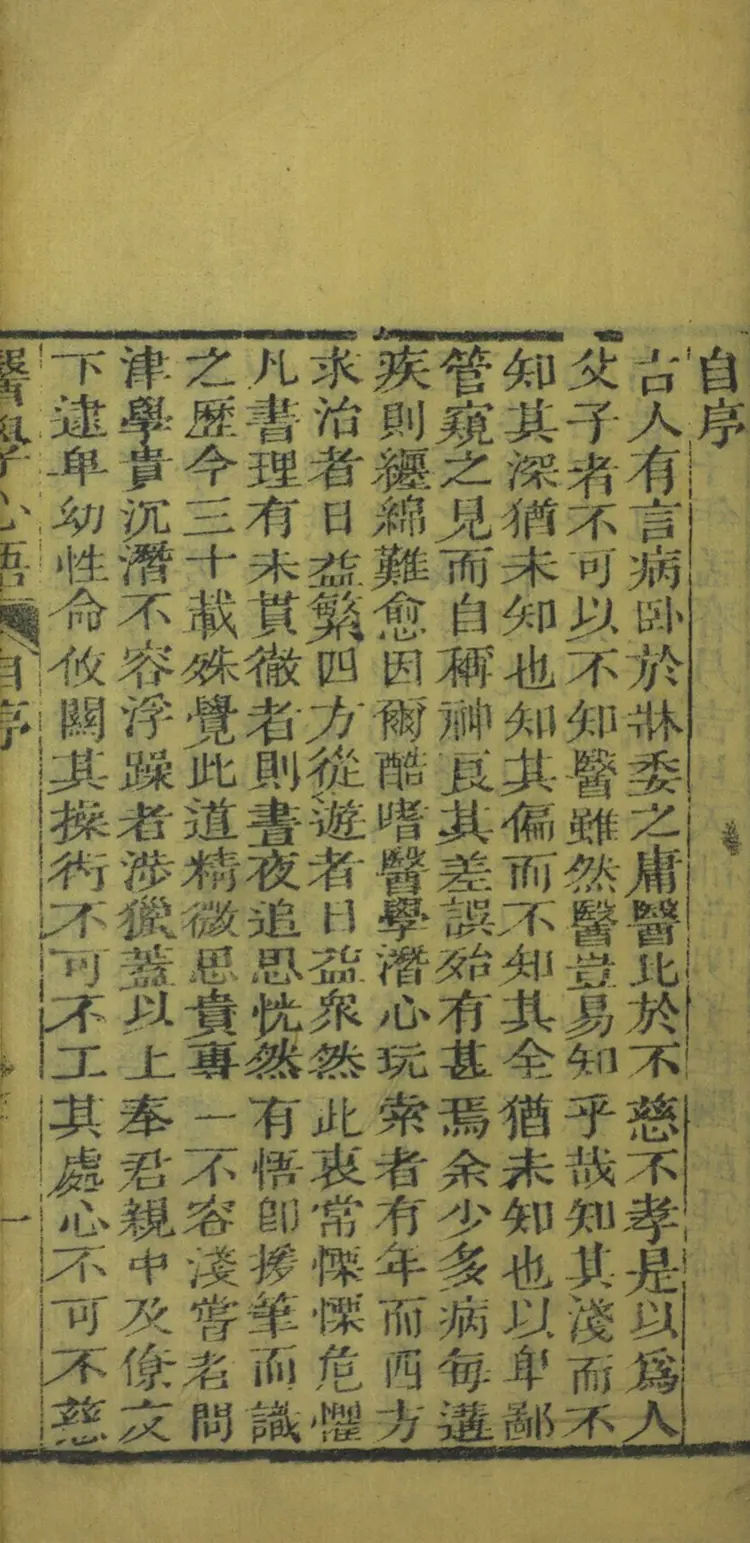 自序
古人有言病臥於牀委之庸醫比於不慈不孝是以爲人
父子者不可以不知醫雖然醫豈易知乎哉知其淺而不
知其深猶未知也知其偏而不知其全猶未知也以卑鄙
管窺之見而自稱神良其差誤殆有甚焉余少多病每遘
疾則纏綿難愈因爾酷嗜醫學潛心玩索者有年而四方
求治者日益繁四方從遊者日益衆然此衷常慄慄危懼
凡書理有未貫徹者則晝夜追思恍然有悟即援筆而識
之歷今三十載殊覺此道精微思貴專一不容淺嘗者問
津學貴沉潛不容浮躁者涉獵蓋以上奉君親中及僚友
下逮卑幼性命攸關其操術不可不工其處心不可不慈
醫學心悟 自序 一